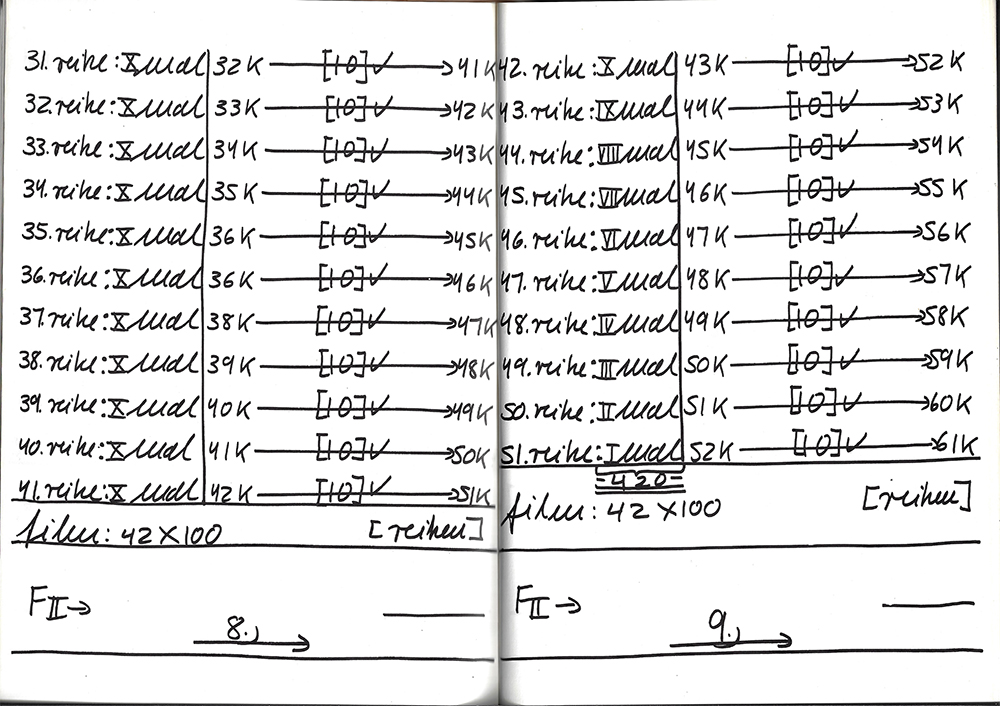 31.reihe:X mal 32K [10]✓ → 41K
32.reihe:X mal 33K [10]✓ → 42K
33.reihe:X mal 34K [10]✓ → 43K
34.reihe:X mal 35K [10]✓ → 44K
35.reihe:X mal 36K [10]✓ → 45K
36.reihe:X mal 36K [10]✓ → 46K
37.reihe:X mal 38K [10]✓ → 47K
38.reihe:X mal 39K [10]✓ → 48K
39.reihe:X mal 40K [10]✓ → 49K
40.reihe:X mal 41K [10]✓ → 50K
41.reihe:X mal 42K [10]✓ → 51K
film: 42X100 [reihen]
FII→
8.)
42.reihe:X mal 43K [10]✓ → 52K
43.reihe:IX mal 44K [10]✓ → 53K
44.reihe:VIII mal 45K [10]✓ → 54K
45.reihe:VII mal 46K [10]✓ → 55K
46.reihe:VI mal 47K [10]✓ → 56K
47.reihe:V mal 48K [10]✓ → 57K
48.reihe:IV mal 49K [10]✓ → 58K
49.reihe:III mal 50K [10]✓ → 59K
50.reihe:II mal 51K [10]✓ → 60K
51.reihe:I mal 52K [10]✓ → 61K
420
film: 42X100 [reihen]
FII→
9.)